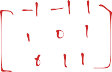 -1 -1 1
1 0 1
0 1 1